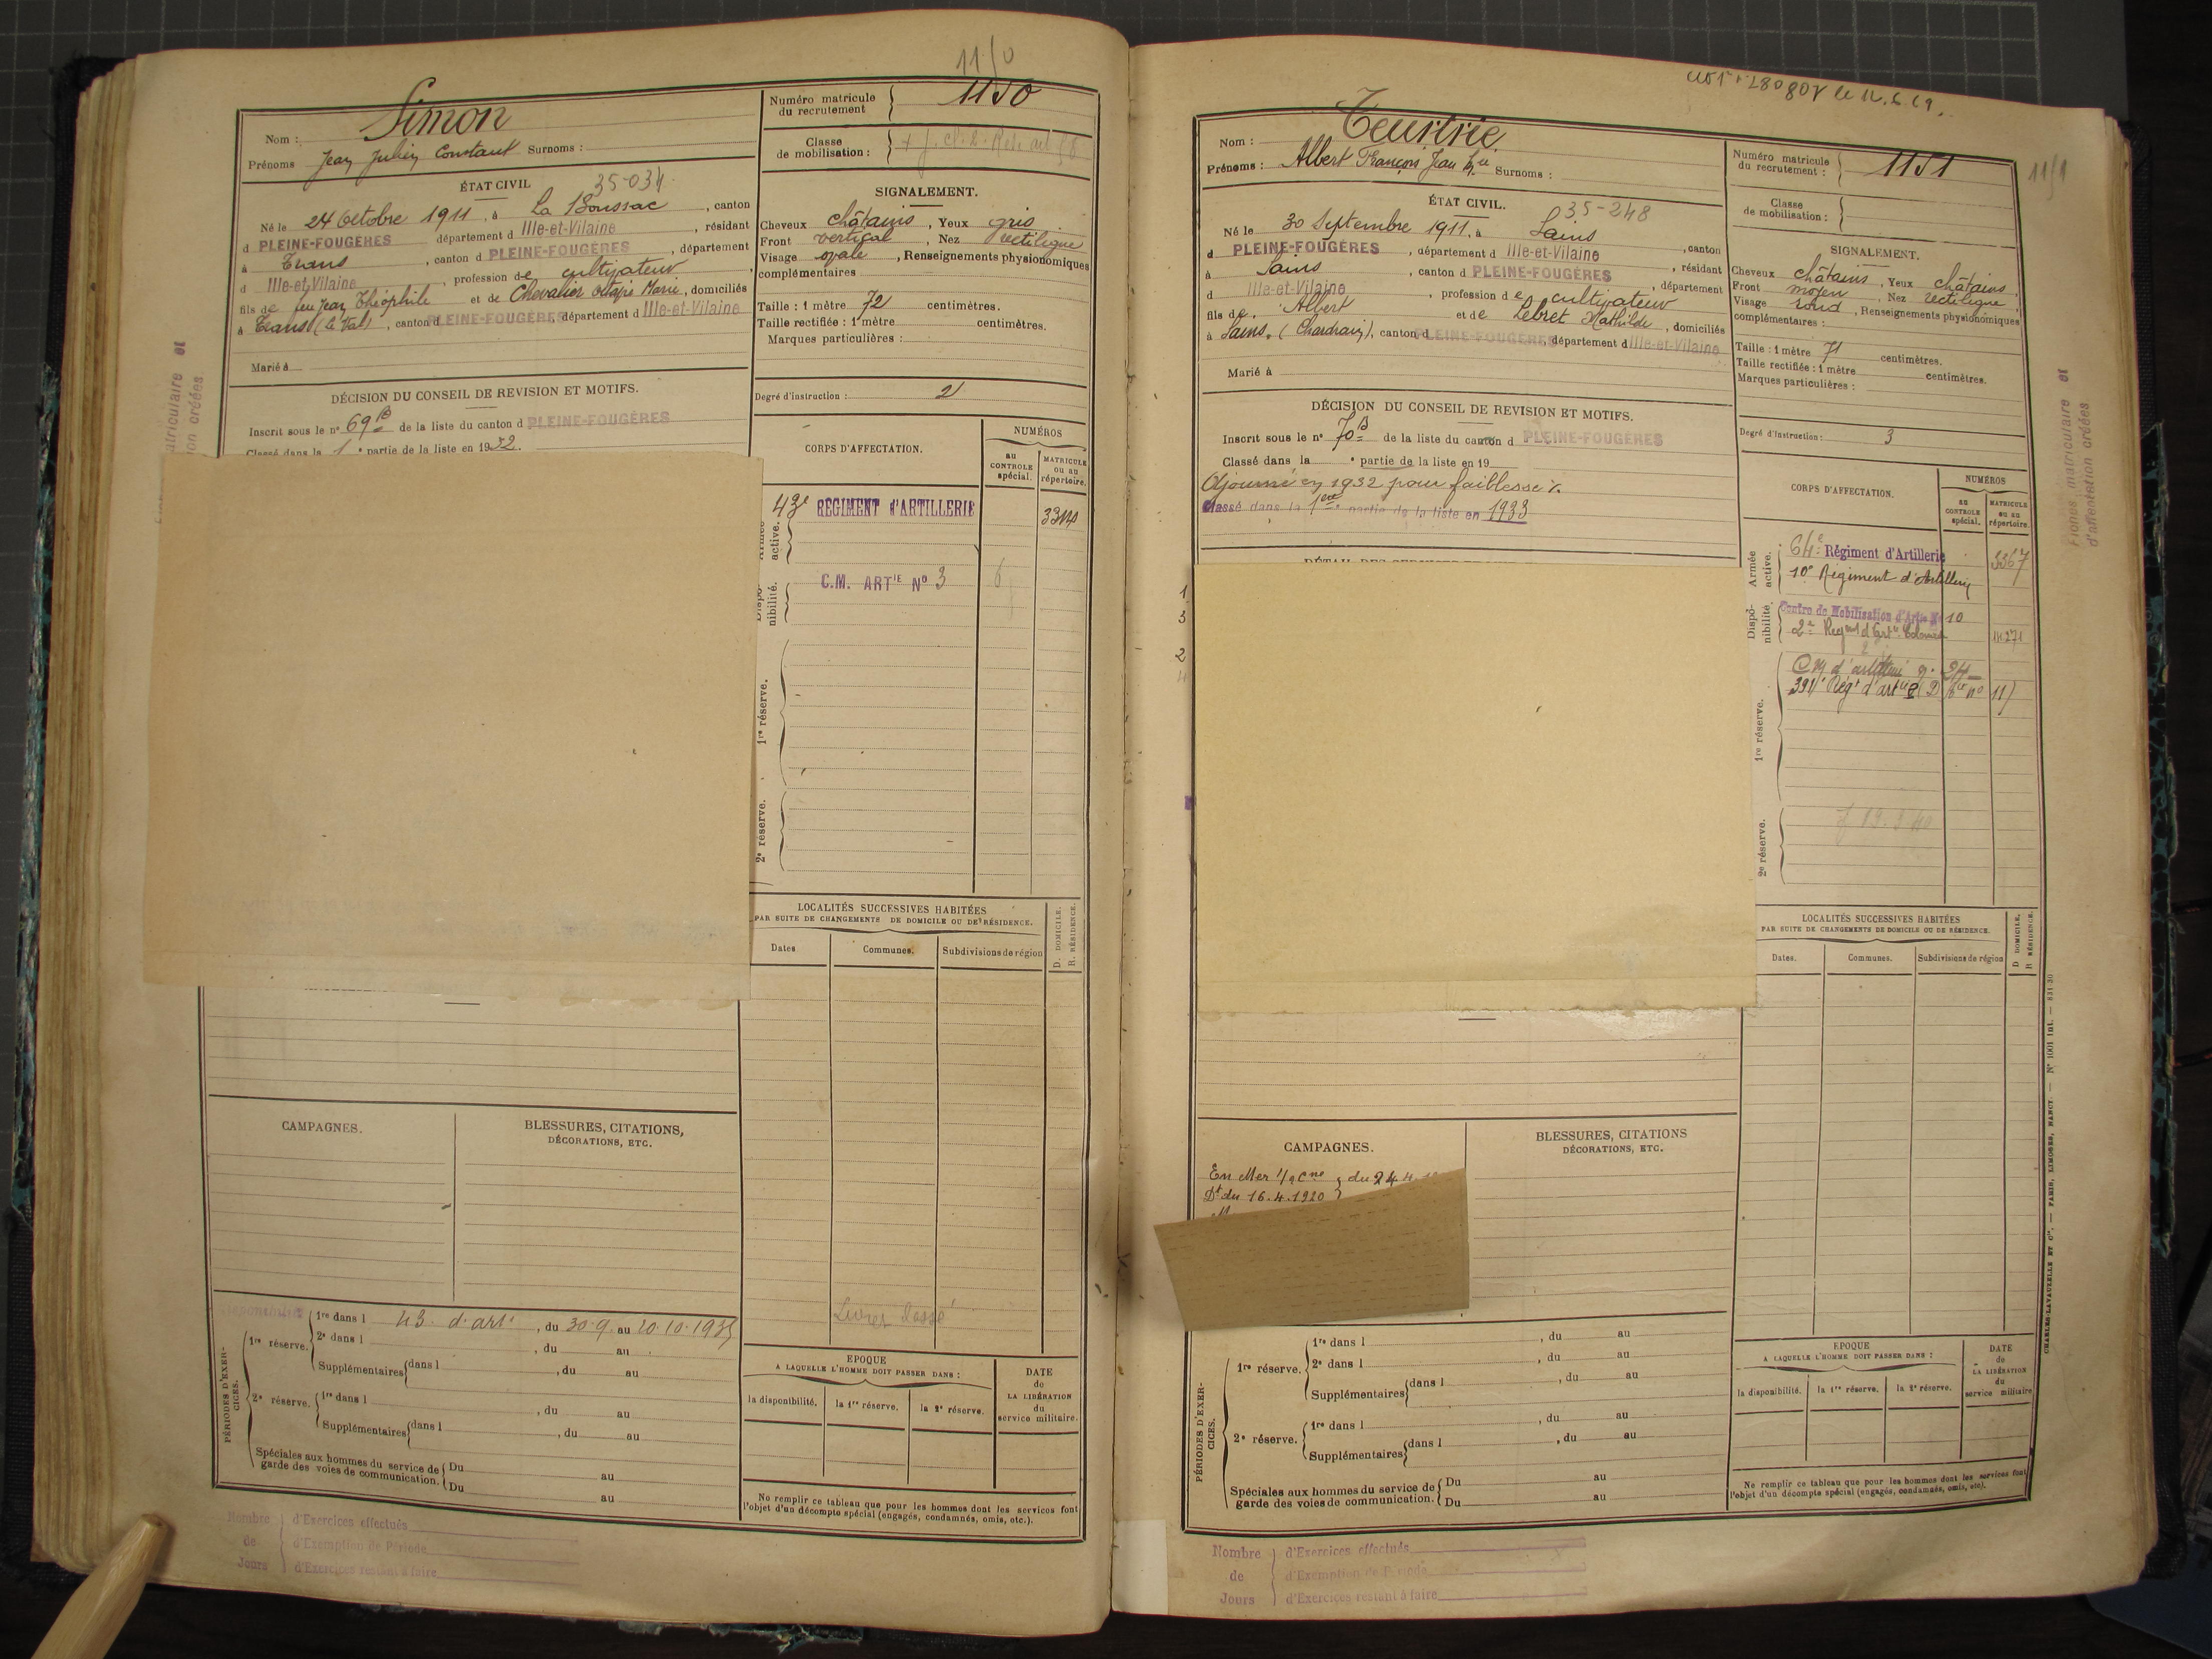 11/0
Simon
Nom :
Prénoms Jean Julien Constant Surnoms :
Numéro matricule
du recrutement
1150
Classe
de mobilisation :
ÉTAT CIVIL
35-034
Né le 24 Octobre 1911, à La Boussac, canton
d PLEINE-FOUGÈRES département d Ille-et-Vilaine, résidant
à Trans, canton d PLEINE-FOUGÈRES, département
d Ille-et-Vilaine, profession de cultivateur,
fils de feu Jean Théophile et de Chevalier Marie, domiciliés
à Trans (le Val), canton d PLEINE-FOUGÈRES, département d Ille-et-Vilaine
Marié à
SIGNALEMENT.
Cheveux châtains, Yeux gris
Front vertical, Nez rectiligne
Visage ovale, Renseignements physionomiques
complémentaires
Taille : 1 mètre 72 centimètres.
Taille rectifiée : 1 mètre centimètres.
Marques particulières :
Degré d'instruction : 2
DÉCISION DU CONSEIL DE REVISION ET MOTIFS.
Inscrit sous le n° 69 B de la liste du canton d PLEINE-FOUGÈRES
Classé dans la 1 e partie de la liste en 1932.
CORPS D'AFFECTATION.
NUMÉROS
au
CONTROLE
spécial.
MATRICULE
ou au
répertoire.
Armée
active.
43e RÉGIMENT d'ARTILLERIE
Dispo-
nibilité.
C.M. ARTIE No 3
6
1re réserve.
2e réserve.
LOCALITÉS SUCCESSIVES HABITÉES
PAR SUITE DE CHANGEMENTS DE DOMICILE OU DE RÉSIDENCE.
D. DOMICILE.
R. RÉSIDENCE.
Dates
Communes.
Subdivisions de région
CAMPAGNES.
BLESSURES, CITATIONS,
DÉCORATIONS, ETC.
Livret
PÉRIODES D'EXER-
CICES.
Disponibilité
1re réserve.
1re dans l 43. d'art., du 30.9. au 20.10.1935
2e dans l, du au
Supplémentaires dans l, du au
2e réserve.
1re dans l, du au
Supplémentaires dans l, du au
Spéciales aux hommes du service de
garde des voies de communication.
Du au
Du au
EPOQUE
A LAQUELLE L'HOMME DOIT PASSER DANS :
la disponibilité.
la 1re réserve.
la 2e réserve.
DATE
de
LA LIBÉRATION
du
service militaire.
Ne remplir ce tableau que pour les hommes dont les services font
l'objet d'un décompte spécial (engagés, condamnés, omis, etc.).
Nombre
de
Jours
d'Exercices effectués
d'Exemption de Période
d'Exercices restant à faire
Teurtrie
Nom :
Prénoms : Albert François Jean Surnoms :
Numéro matricule
du recrutement :
1151
Classe
de mobilisation :
ÉTAT CIVIL.
35-248
Né le 30 Septembre 1911, à Sains, canton
d PLEINE-FOUGÈRES, département d Ille-et-Vilaine, résidant
à Sains, canton d PLEINE-FOUGÈRES, département
d Ille-et-Vilaine, profession de cultivateur
fils de Albert et de Lebret Mathilde, domiciliés
à Sains, canton d PLEINE-FOUGÈRES, département d Ille-et-Vilaine
Marié à
SIGNALEMENT.
Cheveux châtains, Yeux châtains
Front moyen, Nez rectiligne
Visage rond, Renseignements physionomiques
complémentaires :
Taille : 1 mètre 71 centimètres.
Taille rectifiée : 1 mètre centimètres.
Marques particulières :
Degré d'instruction : 3
DÉCISION DU CONSEIL DE REVISION ET MOTIFS.
Inscrit sous le n° 70 B de la liste du canton d PLEINE-FOUGÈRES
Classé dans la e partie de la liste en 19
Ajourné en 1932 pour faiblesse
Classé dans la 1ère partie de la liste en 1933
CORPS D'AFFECTATION.
NUMÉROS
au
CONTROLE
spécial.
MATRICULE
ou au
répertoire.
Armée
active.
64e Régiment d'Artillerie
10e Régiment d'Artillerie
Dispo-
nibilité.
Centre de Mobilisation d'Artie No 10
1re réserve.
2e réserve.
LOCALITÉS SUCCESSIVES HABITÉES
PAR SUITE DE CHANGEMENTS DE DOMICILE OU DE RÉSIDENCE.
D. DOMICILE.
R. RÉSIDENCE.
Dates.
Communes.
Subdivisions de région
CAMPAGNES.
BLESSURES, CITATIONS
DÉCORATIONS, ETC.
PÉRIODES D'EXER-
CICES.
1re réserve.
1re dans l, du au
2e dans l, du au
Supplémentaires dans l, du au
2e réserve.
1re dans l, du au
Supplémentaires dans l, du au
Spéciales aux hommes du service de
garde des voies de communication.
Du au
Du au
EPOQUE
A LAQUELLE L'HOMME DOIT PASSER DANS :
la disponibilité.
la 1re réserve.
la 2e réserve.
DATE
de
LA LIBÉRATION
du
service militaire
Ne remplir ce tableau que pour les hommes dont les services font
l'objet d'un décompte spécial (engagés, condamnés, omis, etc).
Nombre
de
Jours
d'Exercices effectués
d'Exemption de Période
d'Exercices restant à faire
Fiches matriculaire et
d'affectation créées